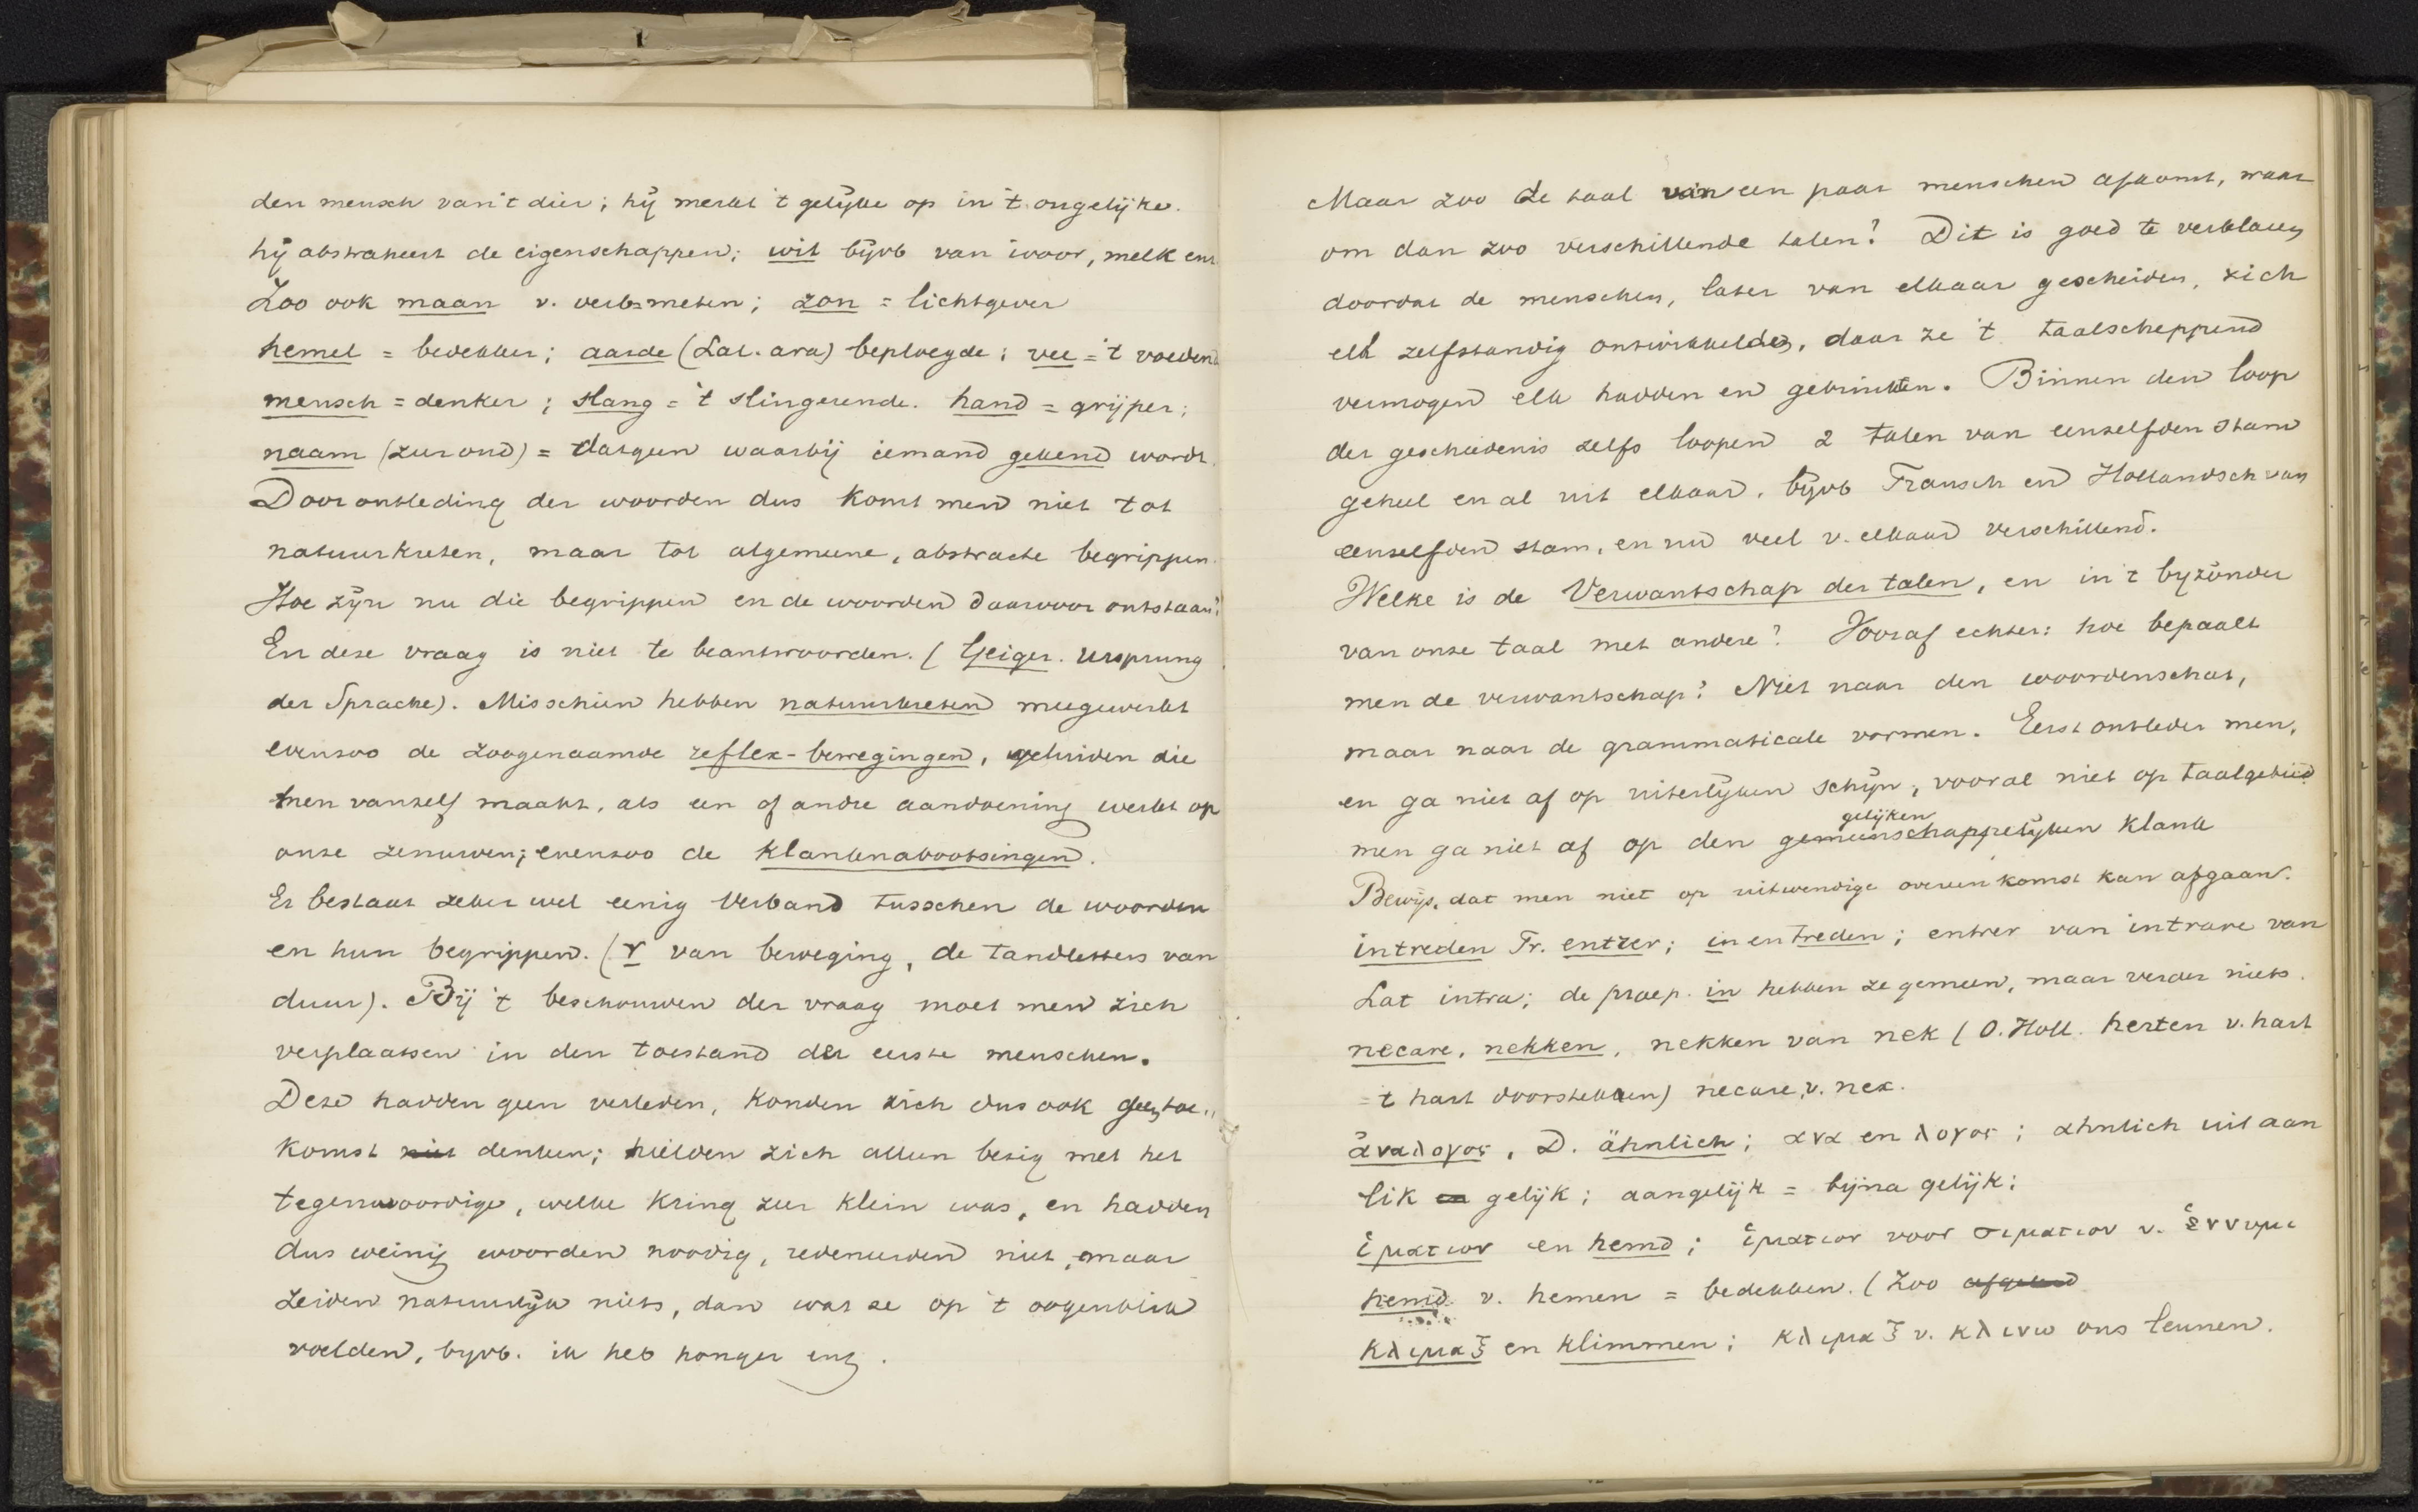 den mensch van 't dier; hij merkt 't gelijke op in 't ongelijke.
hij abstraheert de eigenschappen; wit bijvb van ivoor, melk enz.
Zoo ook maan v. verb. meten; zon = lichtgever
hemel = bedekker; aarde (Lat. ara) beploegde; vee = 't voedend
mensch = denker; slang = 't slingerende. hand = grijper;
naam (zeer oud) = datgeen waarbij iemand gekend wordt.
Door ontleding der woorden dus komt men niet tot
natuurkreten, maar tot algemeene, abstracte begrippen.
Hoe zijn nu die begrippen en de woorden daarvoor ontstaan?
En deze vraag is niet te beantwoorden. (Geiger. Ursprung
der Sprache). Misschien hebben natuurkreten meegewerkt
evenzoo de zoogenaamde reflex-bewegingen, geluiden die
men vanzelf maakt, als een of andre aandoening werkt op
onze zenuwen; evenzoo de klanknabootsingen.
Er bestaat zeker wel eenig verband tusschen de woorden
en hun begrippen. (r van beweging, de tandletters van
duur). Bij 't beschouwen der vraag moet men zich
verplaatsen in den toestand der eerste menschen.
Deze hadden geen verleden, konden zich dus ook geen toe„
komst niet denken; hielden zich alleen bezig met het
tegenwoordige, welke kring zeer klein was, en hadden
dus weinig woorden noodig, redeneerden niet, maar
zeiden natuurlijk niets, dan wat ze op 't oogenblik
voelden, bijvb. ik heb honger enz.
Maar zoo de taal van een paar menschen afkomt, waar
om dan zoo verschillende talen? Dit is goed te verklaren
doordat de menschen, later van elkaar gescheiden, zich
elk zelfstandig ontwikkelden, daar ze 't taalscheppend
vermogen elk hadden en gebruikten. Binnen den loop
der geschiedenis zelfs loopen 2 talen van eenzelfden stam
geheel en al uit elkaar, bijvb Fransch en Hollandsch van
eenzelfden stam, en nu veel v. elkaar verschillend.
Welke is de Verwantschap der talen, en in 't byzonder
van onze taal met andere? Vooraf echter: hoe bepaalt
men de verwantschap? Niet naar den woordenschat,
maar naar de grammaticale vormen. Eerst ontleder men,
en ga niet af op uiterlijken schijn, vooral niet op taalgebied
gelijken
men ga niet af op den gemeenschappelijken klank
Bewijs, dat men niet op uitwendige overeenkomst kan afgaan.
intreden Fr. entrer; in en treden; entrer van intrare van
Lat intra; de praep. in hebben ze gemeen, maar verder niets.
necare, nekken, nekken van nek (O. Holl. herten v. hart
= 't hart doorstekken) necare v. nex.
ἀναλογος, D. ähnlich; ανα en λογος; ahnlich uit aan
lik en gelijk; aangelijk = bijna gelijk;
ἱματιον en hemd; ἱματιον voor σιματιον v. ἑννυμι
hemd v. hemen = bedekken. (Zoo
κλιμαξ en klimmen; κλιμαξ v. κλινω ons leunen.